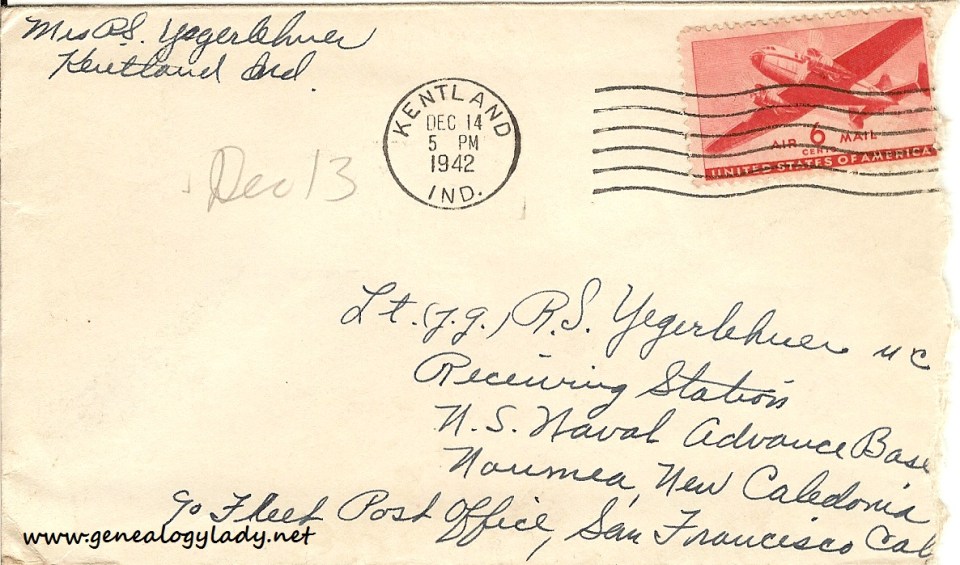 Mrs R.S. Yegerlehner
Kentland Ind.
KENTLAND
DEC 14
5 PM
1942
IND.
AIR 6 MAIL
CENTS
UNITED STATES OF AMERICA
Dec 13
Lt. (j.g.) R.S. Yegerlehner MC
Receiving Station
U.S. Naval Advance Base
Noumea, New Caledonia
c/o Fleet Post Office, San Francisco Cal
www.genealogylady.net